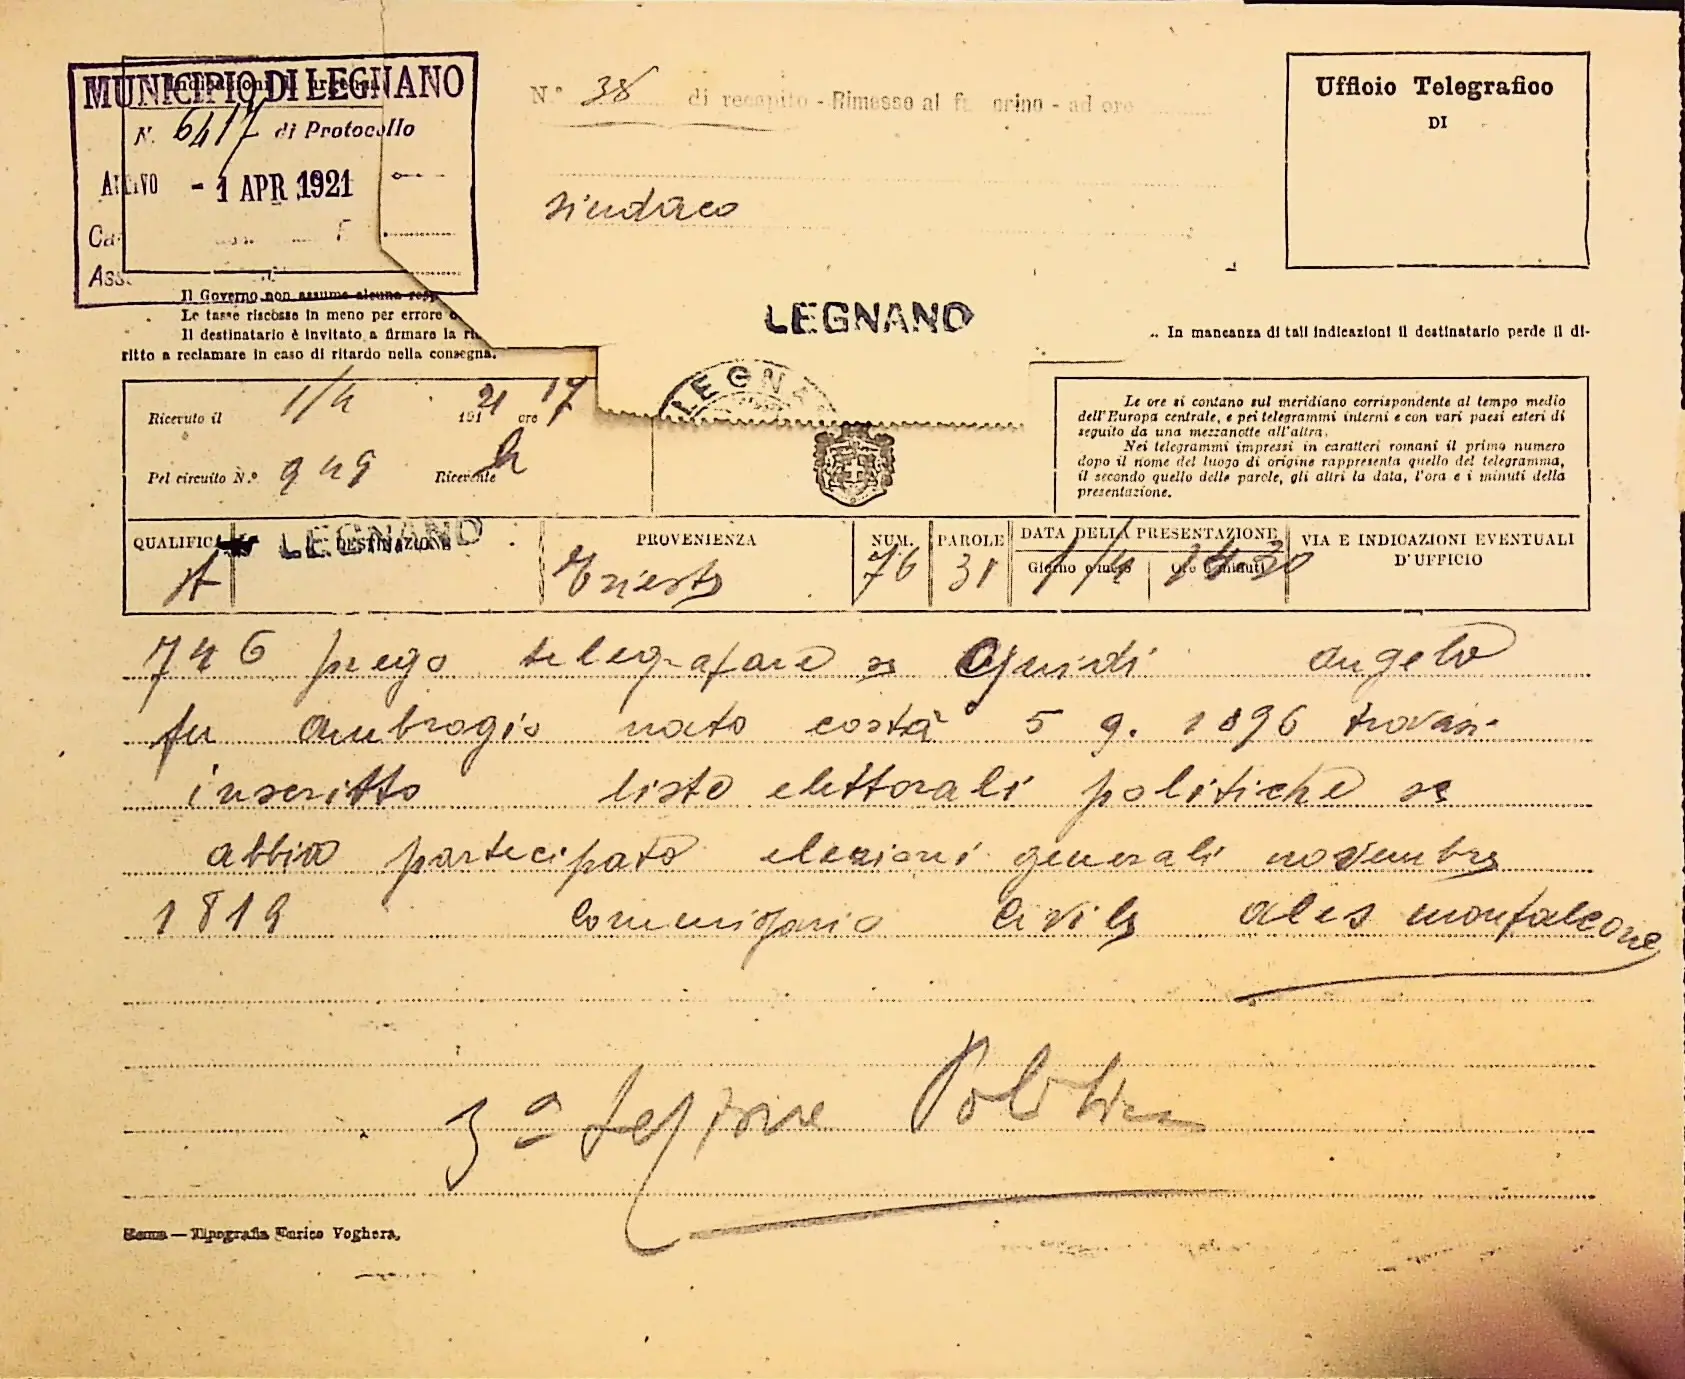 MUNICIPIO DI LEGNANO
N. 6417 di Protocollo
- 1 APR 1921
N.° 38 di recapito - Rimesso al fattorino - ad ore
sindaco
LEGNANO
Ufficio Telegrafico
DI
Il Governo non assume alcuna
Le tasse riscosse in meno per errore
Il destinatario è invitato a firmare la
ritto a reclamare in caso di ritardo nella consegna.
In mancanza di tali indicazioni il destinatario perde il di-
Ricevuto il 1/4 1921 ore 17
Pel circuito N.° 949 Ricevente
Le ore si contano sul meridiano corrispondente al tempo medio
dell'Europa centrale, e pei telegrammi interni e con vari paesi esteri di
seguito da una mezzanotte all'altra.
Nei telegrammi impressi in caratteri romani il primo numero
dopo il nome del luogo di origine rappresenta quello del telegramma,
il secondo quello delle parole, gli altri la data, l'ora e i minuti della
presentazione.
QUALIFICA DESTINAZIONE PROVENIENZA NUM. PAROLE DATA DELLA PRESENTAZIONE VIA E INDICAZIONI EVENTUALI
Giorno e mese Ore e minuti D'UFFICIO
LEGNANO Trieste 76 31 1/4
746 prego telegrafare se Guidi angelo
fu ambrogio nato costà 5 9. 1896 trovasi
inscritto liste elettorali politiche se
abbia partecipato elezioni generali novembre
1819 Commissario Civile ales monfalcone
3ª Sezione Politica
Roma — Tipografia Enrico Voghera.